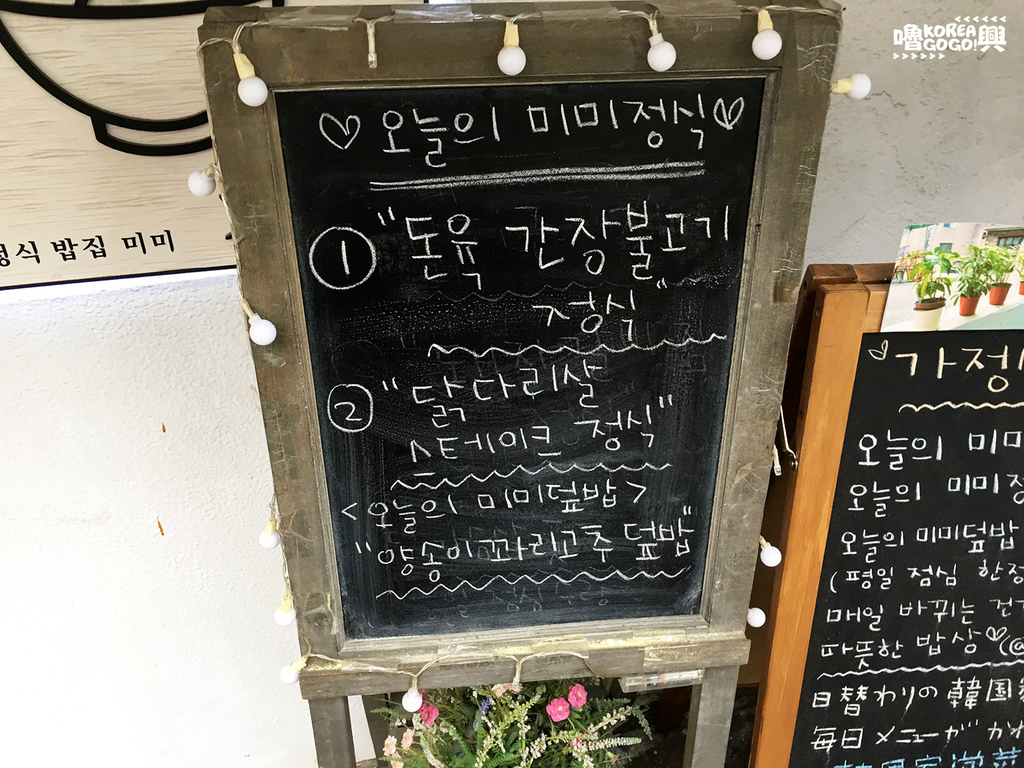 嚕 KOREA GOGO! 興
정식 밥집 미미
오늘의 미미정식
① "돈육 간장불고기
정식"
② "닭다리살
스테이크 정식"
<오늘의 미미덮밥>
"양송이꽈리고추 덮밥"
가정
오늘의 미미
오늘의 미미정
오늘의 미미덮밥
(평일 점심 한정
매일 바뀌는 건
따뜻한 밥상♡(@
日替わりの韓国
毎日メニューが かわ